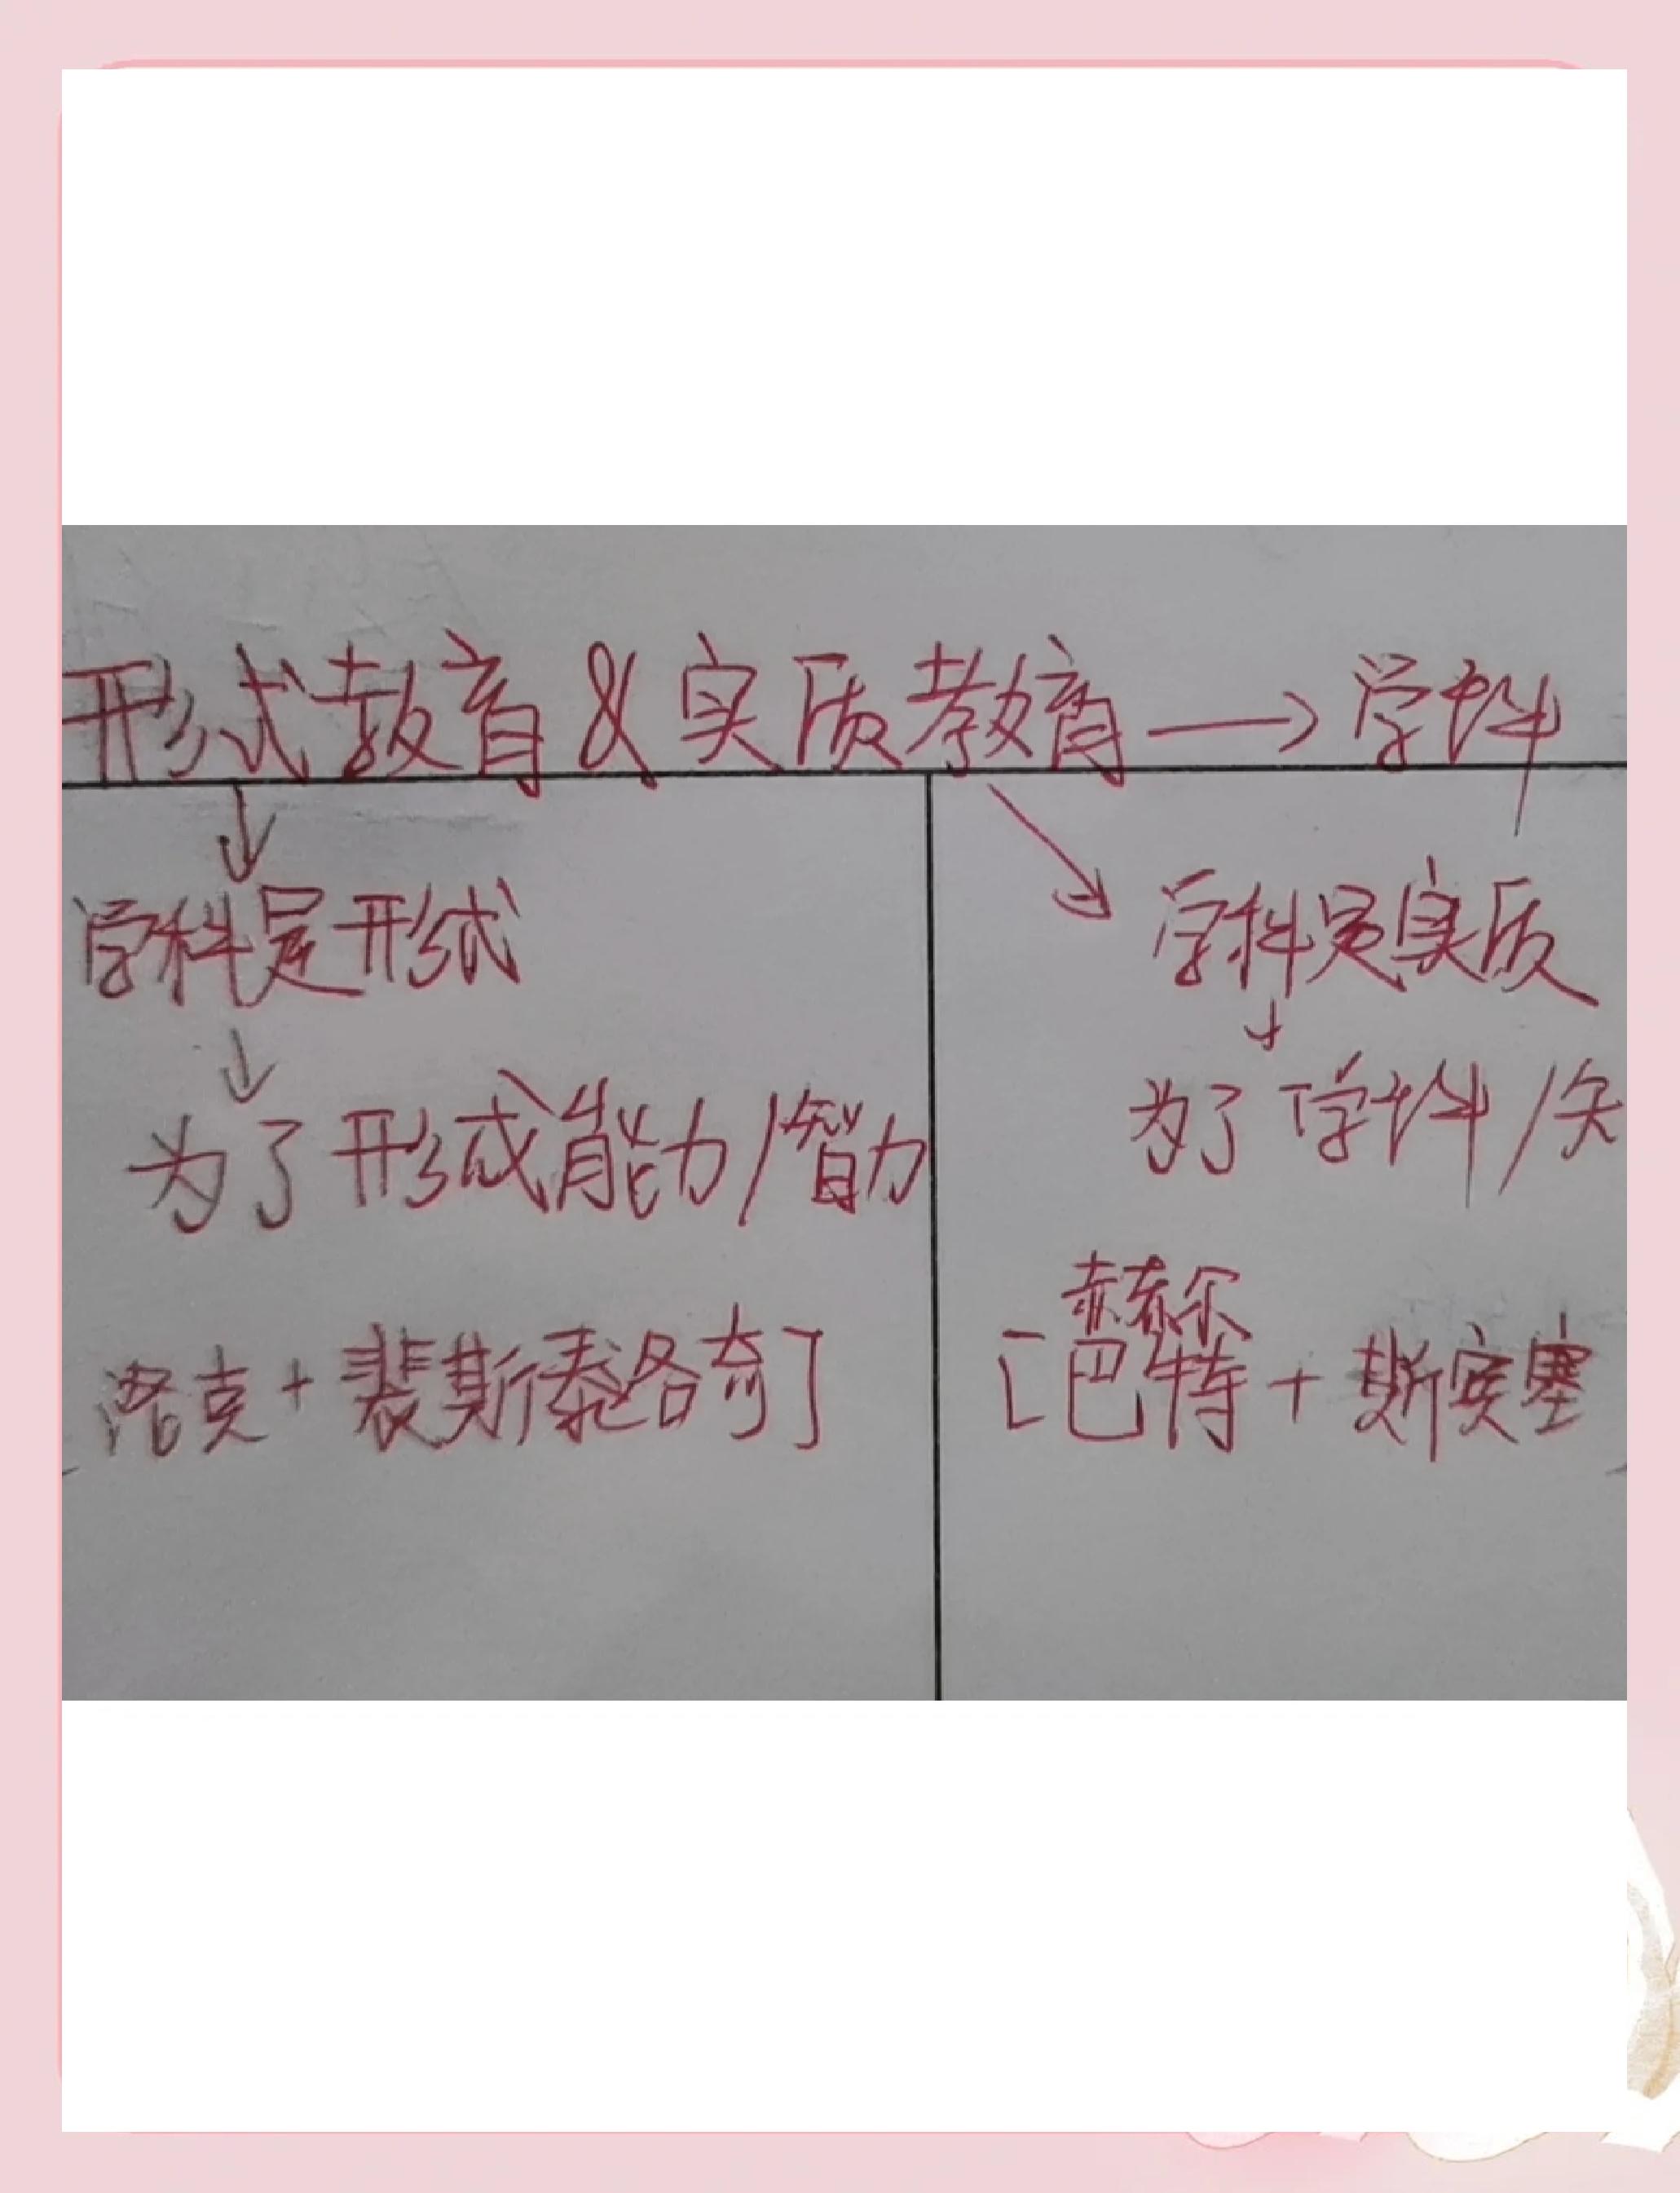 形式教育 & 实质教育 → 学科
↓
学科是形式
↓
为了形成能力/智力
洛克 + 裴斯泰洛奇]
学科是实质
↓
为了学科/
赫尔
[巴特 + 斯宾塞